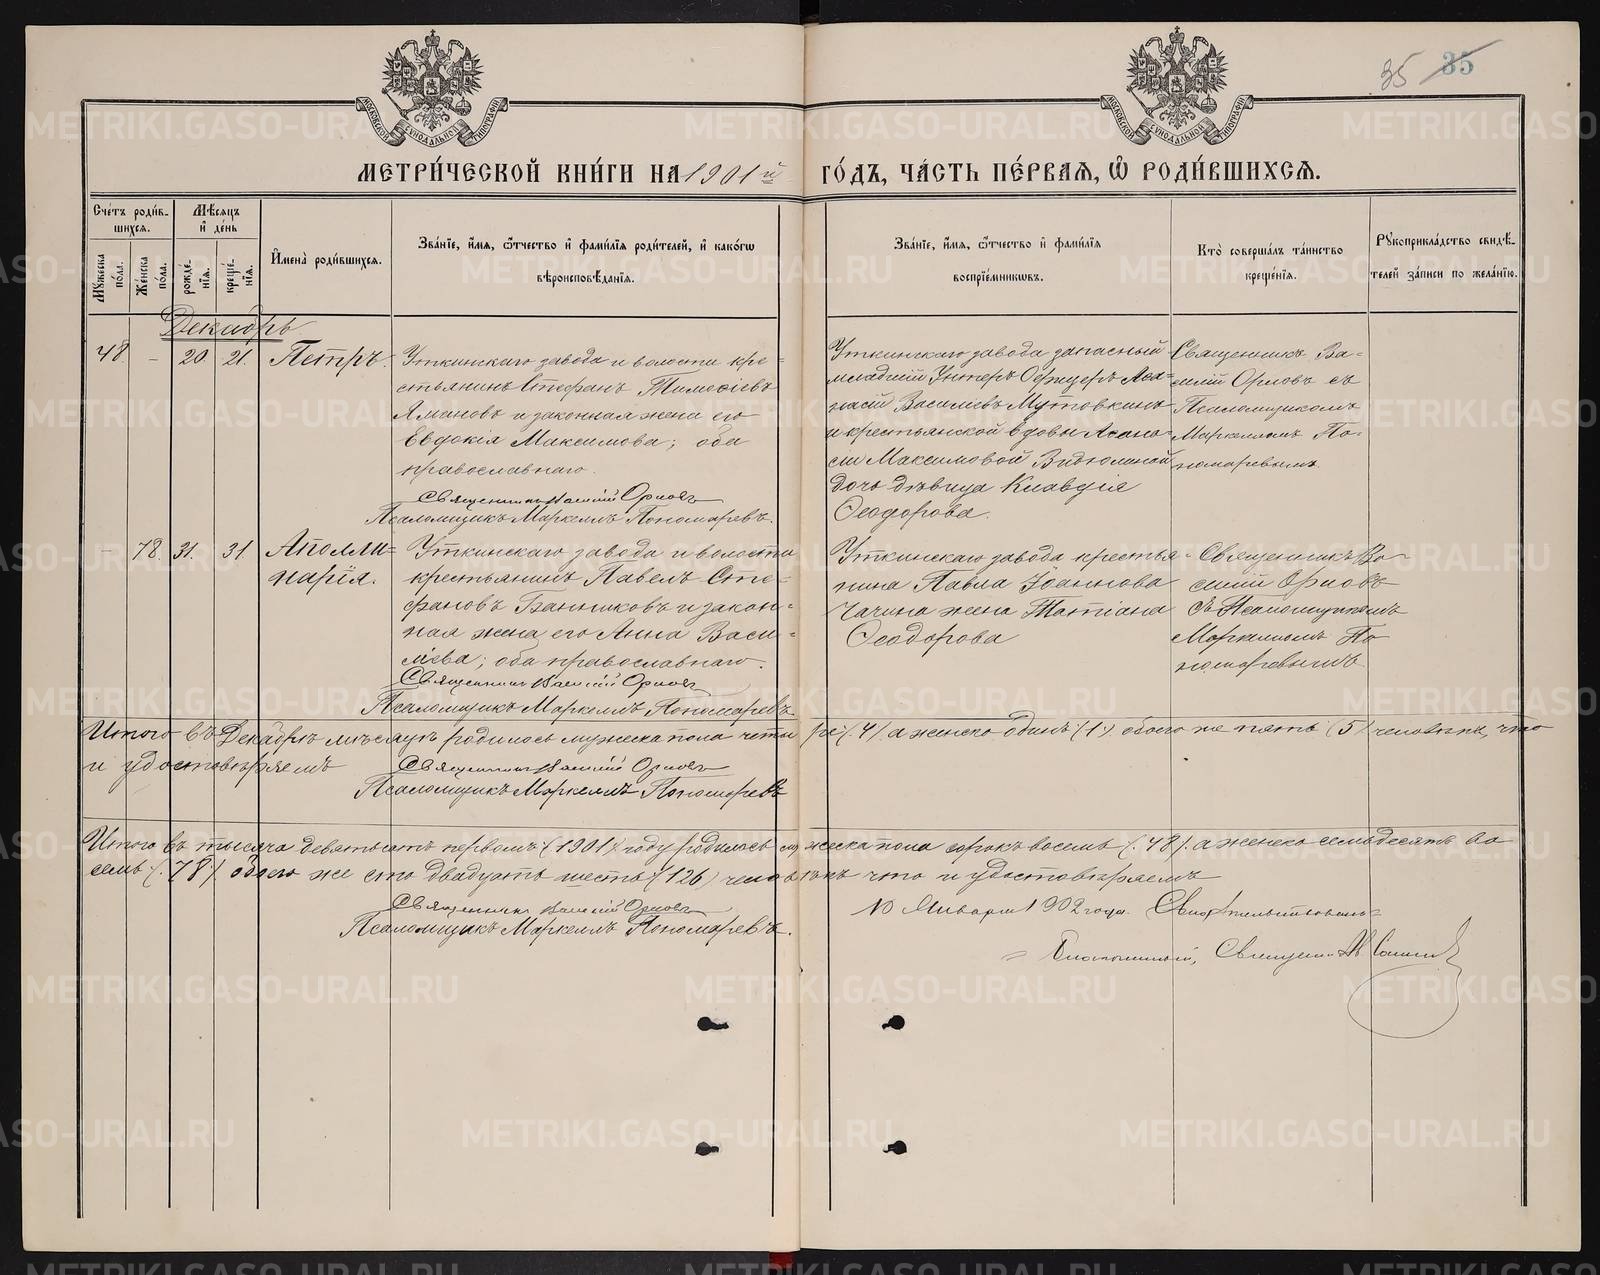 35 35
МОСКОВСКОЙ СѴНОДАЛЬНОЙ ТИПОГРАФІИ
МОСКОВСКОЙ СѴНОДАЛЬНОЙ ТИПОГРАФІИ
МЕТРИ́ЧЕСКОЙ КНИ́ГИ НА 1901й ГО́ДЪ, ЧА́СТЬ ПЕ́РВАЯ, Ѽ РОДИ́ВШИХСЯ.
Сче́тъ роди́в-
шихся.
Му́жеска
по́ла.
Же́нска
по́ла.
Мѣ́сяцъ
и де́нь
рожде́-
нія.
креще́-
нія.
Имена̀ роди́вшихся.
Зва́ніе, и́мя, ѻ҆́тчество и фами́лія роди́телей, и како́гѡ
вѣроисповѣ́данія.
Зва́ніе, и́мя, ѻ҆́тчество и фами́лія
воспріе́мникѡвъ.
Кто̀ соверша́лъ та́инство
креще́нія.
Рукоприкла́дство свидѣ́-
телей за́писи по жела́нію.
Декабрь
48 - 20 21. Петръ.
Уткинскаго завода и волости кре=
стьянинъ Стефанъ Тимоѳіевъ
Ямановъ и законная жена его
Евдокія Максимова; оба
православнаго.
Священникъ Василій Орловъ
Псаломщикъ Маркеллъ Пономаревъ.
Уткинскаго завода запасный
младшій Унтеръ Офицеръ Аѳа=
насій Василіевъ Мутовкинъ
и крестьянской вдовы Аѳана=
сіи Максимовой Видюлиной
дочь дѣвица Клавдія
Ѳеодорова.
Священникъ Ва-
силій Орловъ съ
Псаломщикомъ
Маркелломъ По-
номаревымъ.
- 78. 31. 31. Аполли=
нарія.
Уткинскаго завода и волости
крестьянинъ Павелъ Сте=
фановъ Банниковъ и закон=
ная жена его Анна Васи=
ліева; оба православнаго.
Священникъ Василій Орловъ
Псаломщикъ Маркеллъ Пономаревъ
Уткинскаго завода крестья-
нина Павла Іоаннова
Чагина жена Татіана
Ѳеодорова
Священникъ Ва-
силій Орловъ
съ Псаломщикомъ
Маркелломъ По
номаревымъ
Итого въ Декабрѣ мѣсяцѣ родилось мужеска пола четыре (4) а женска одинъ (1) обоего же пять (5) человѣкъ, что
и удостовѣряемъ
Священникъ Василій Орловъ
Псаломщикъ Маркеллъ Пономаревъ
Итого въ тысяча девятьсотъ первомъ (1901) году родилось мужеска пола сорокъ восемь (48) а женска семьдесятъ во
семь (78) обоего же сто двадцать шесть (126) человѣкъ что и удостовѣряемъ
Священникъ Василій Орловъ
Псаломщикъ Маркеллъ Пономаревъ.
10 Января 1902 года. Свидѣтельствовалъ
Благочинный, Священникъ
METRIKI.GASO-URAL.RU